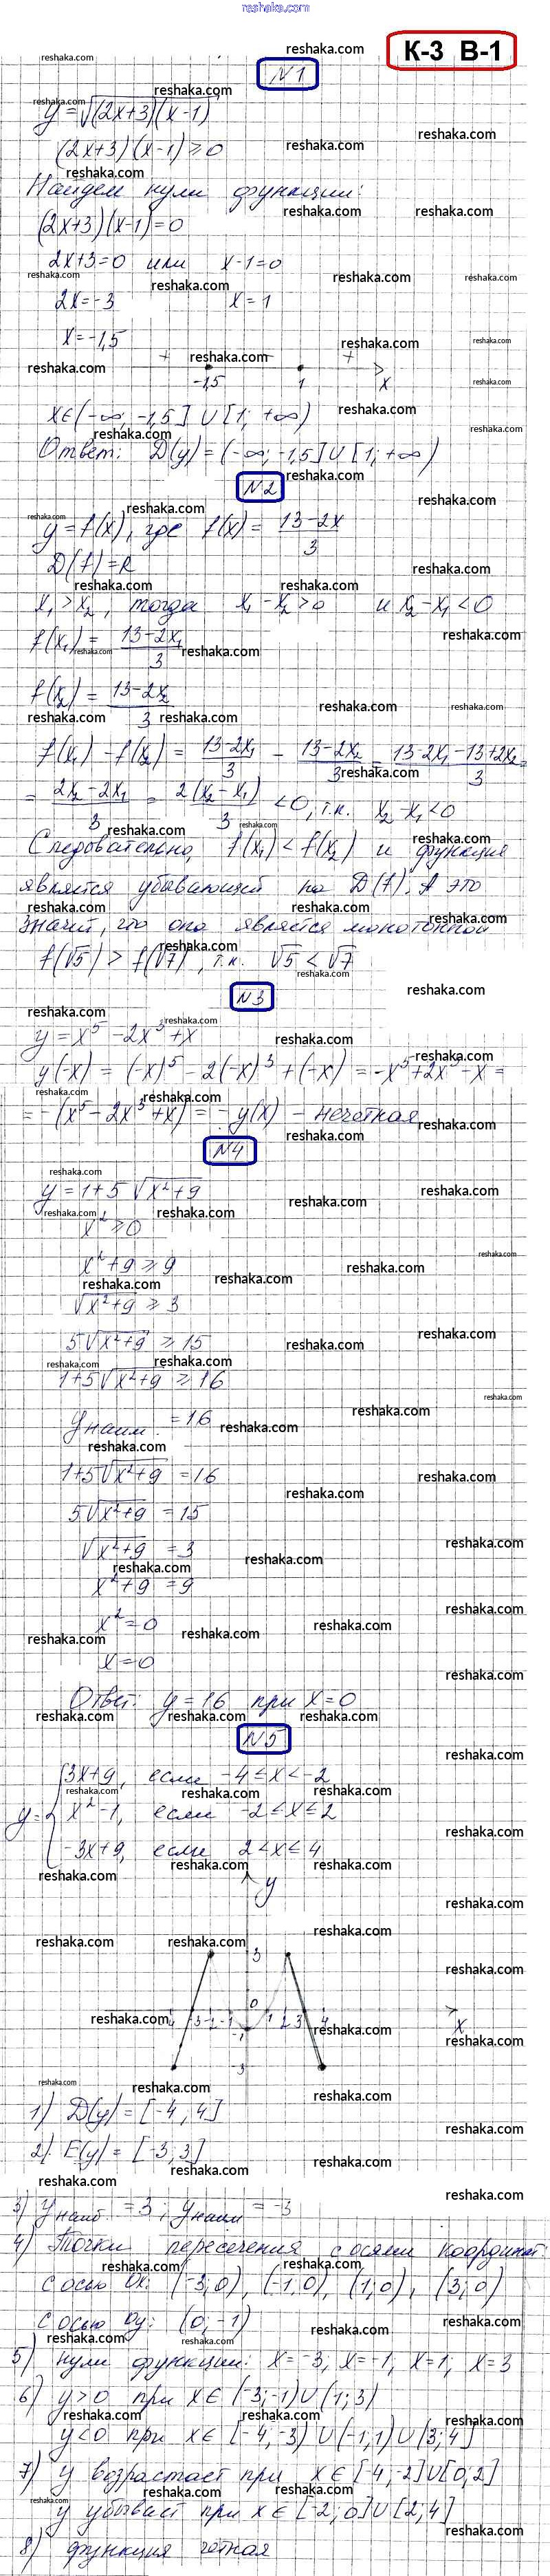 reshaka.com
К-3 В-1
N1
y=√(2x+3)(x-1)
(2x+3)(x-1)≥0
Найдем нули функции:
(2x+3)(x-1)=0
2x+3=0 или x-1=0
2x=-3 x=1
x=-1,5
+ +
-1,5 1 x
x∈(-∞; -1,5]∪[1; +∞)
Ответ: D(y)=(-∞; -1,5]∪[1; +∞)
N2
y=f(x), где f(x)= 13-2x/3
D(f)=R
x₁>x₂, тогда x₁-x₂>0 и x₂-x₁<0
f(x₁)= 13-2x₁/3
f(x₂)= 13-2x₂/3
f(x₁)-f(x₂)= 13-2x₁/3 - 13-2x₂/3 = 13-2x₁-13+2x₂/3 =
= 2x₂-2x₁/3 = 2(x₂-x₁)/3 <0, т.к. x₂-x₁<0
Следовательно, f(x₁)<f(x₂) и функция
является убывающей на D(f). А это
значит, что она является монотонной
f(√5)>f(√7), т.к. √5<√7
N3
y=x⁵-2x³+x
y(-x)=(-x)⁵-2(-x)³+(-x)=-x⁵+2x³-x=
=-(x⁵-2x³+x)=-y(x) - нечетная
N4
y=1+5√x²+9
x²≥0
x²+9≥9
√x²+9≥3
5√x²+9≥15
1+5√x²+9≥16
yнаим.=16
1+5√x²+9=16
5√x²+9=15
√x²+9=3
x²+9=9
x²=0
x=0
Ответ: y=16 при x=0
N5
3x+9, если -4≤x<-2
y={ x²-1, если -2≤x≤2
-3x+9, если 2<x≤4
y
3
0
-4 -3 -2 -1 1 2 3 4 x
-1
-3
1) D(y)=[-4; 4]
2) E(y)=[-3; 3]
3) yнаиб=3; yнаим=-3
4) Точки пересечения с осями координат:
с осью Ox: (-3;0), (-1;0), (1;0), (3;0)
с осью Oy: (0;-1)
5) нули функции: x=-3; x=-1; x=1; x=3
6) y>0 при x∈(-3;-1)∪(1;3)
y<0 при x∈[-4;-3)∪(-1;1)∪(3;4]
7) y возрастает при x∈[-4;-2]∪[0;2]
y убывает при x∈[-2;0]∪[2;4]
8) функция четная